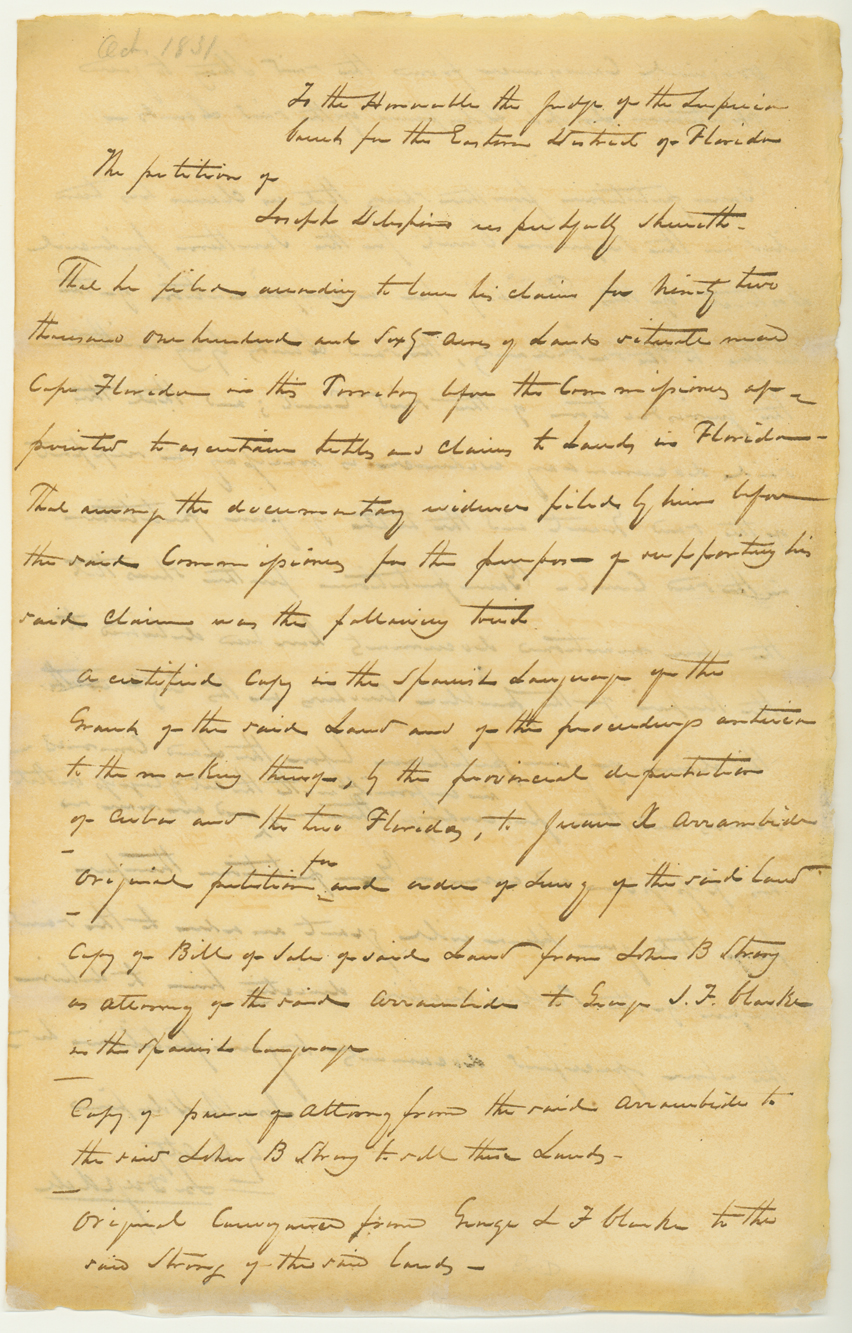 Oct 1831
To the Honourable the Judge of the Superior
Court for the Eastern District of Florida
The petition of
Joseph Delespine respectfully sheweth-
That he filed according to law his claim for Ninety two
thousand one hundred and Sixty acres of Land situate near
Cape Florida in this Territory before the Commissioners ap-
pointed to ascertain titles and claims to Lands in Florida-
That among the documentary evidence filed by him before
the said Commissioners for the purpose of supporting his
said Claim was the following towit
A certified Copy in the Spanish Language of the
Grant of the said Land and of the proceedings anterior
to the making thereof, by the provincial deputation
of Cuba and the two Floridas, to Juan X Arrambide
for
Original petition and order of Survey of the said Land
Copy of Bill of Sale of said Land from John B Strong
as attorney of the said Arrambide to George J. F. Clarke
in the Spanish language
Copy of power of Attorney from the said Arrambide to
the said John B Strong to sell these Lands-
Original Conveyance from George J F Clarke to the
said Strong of the said lands-